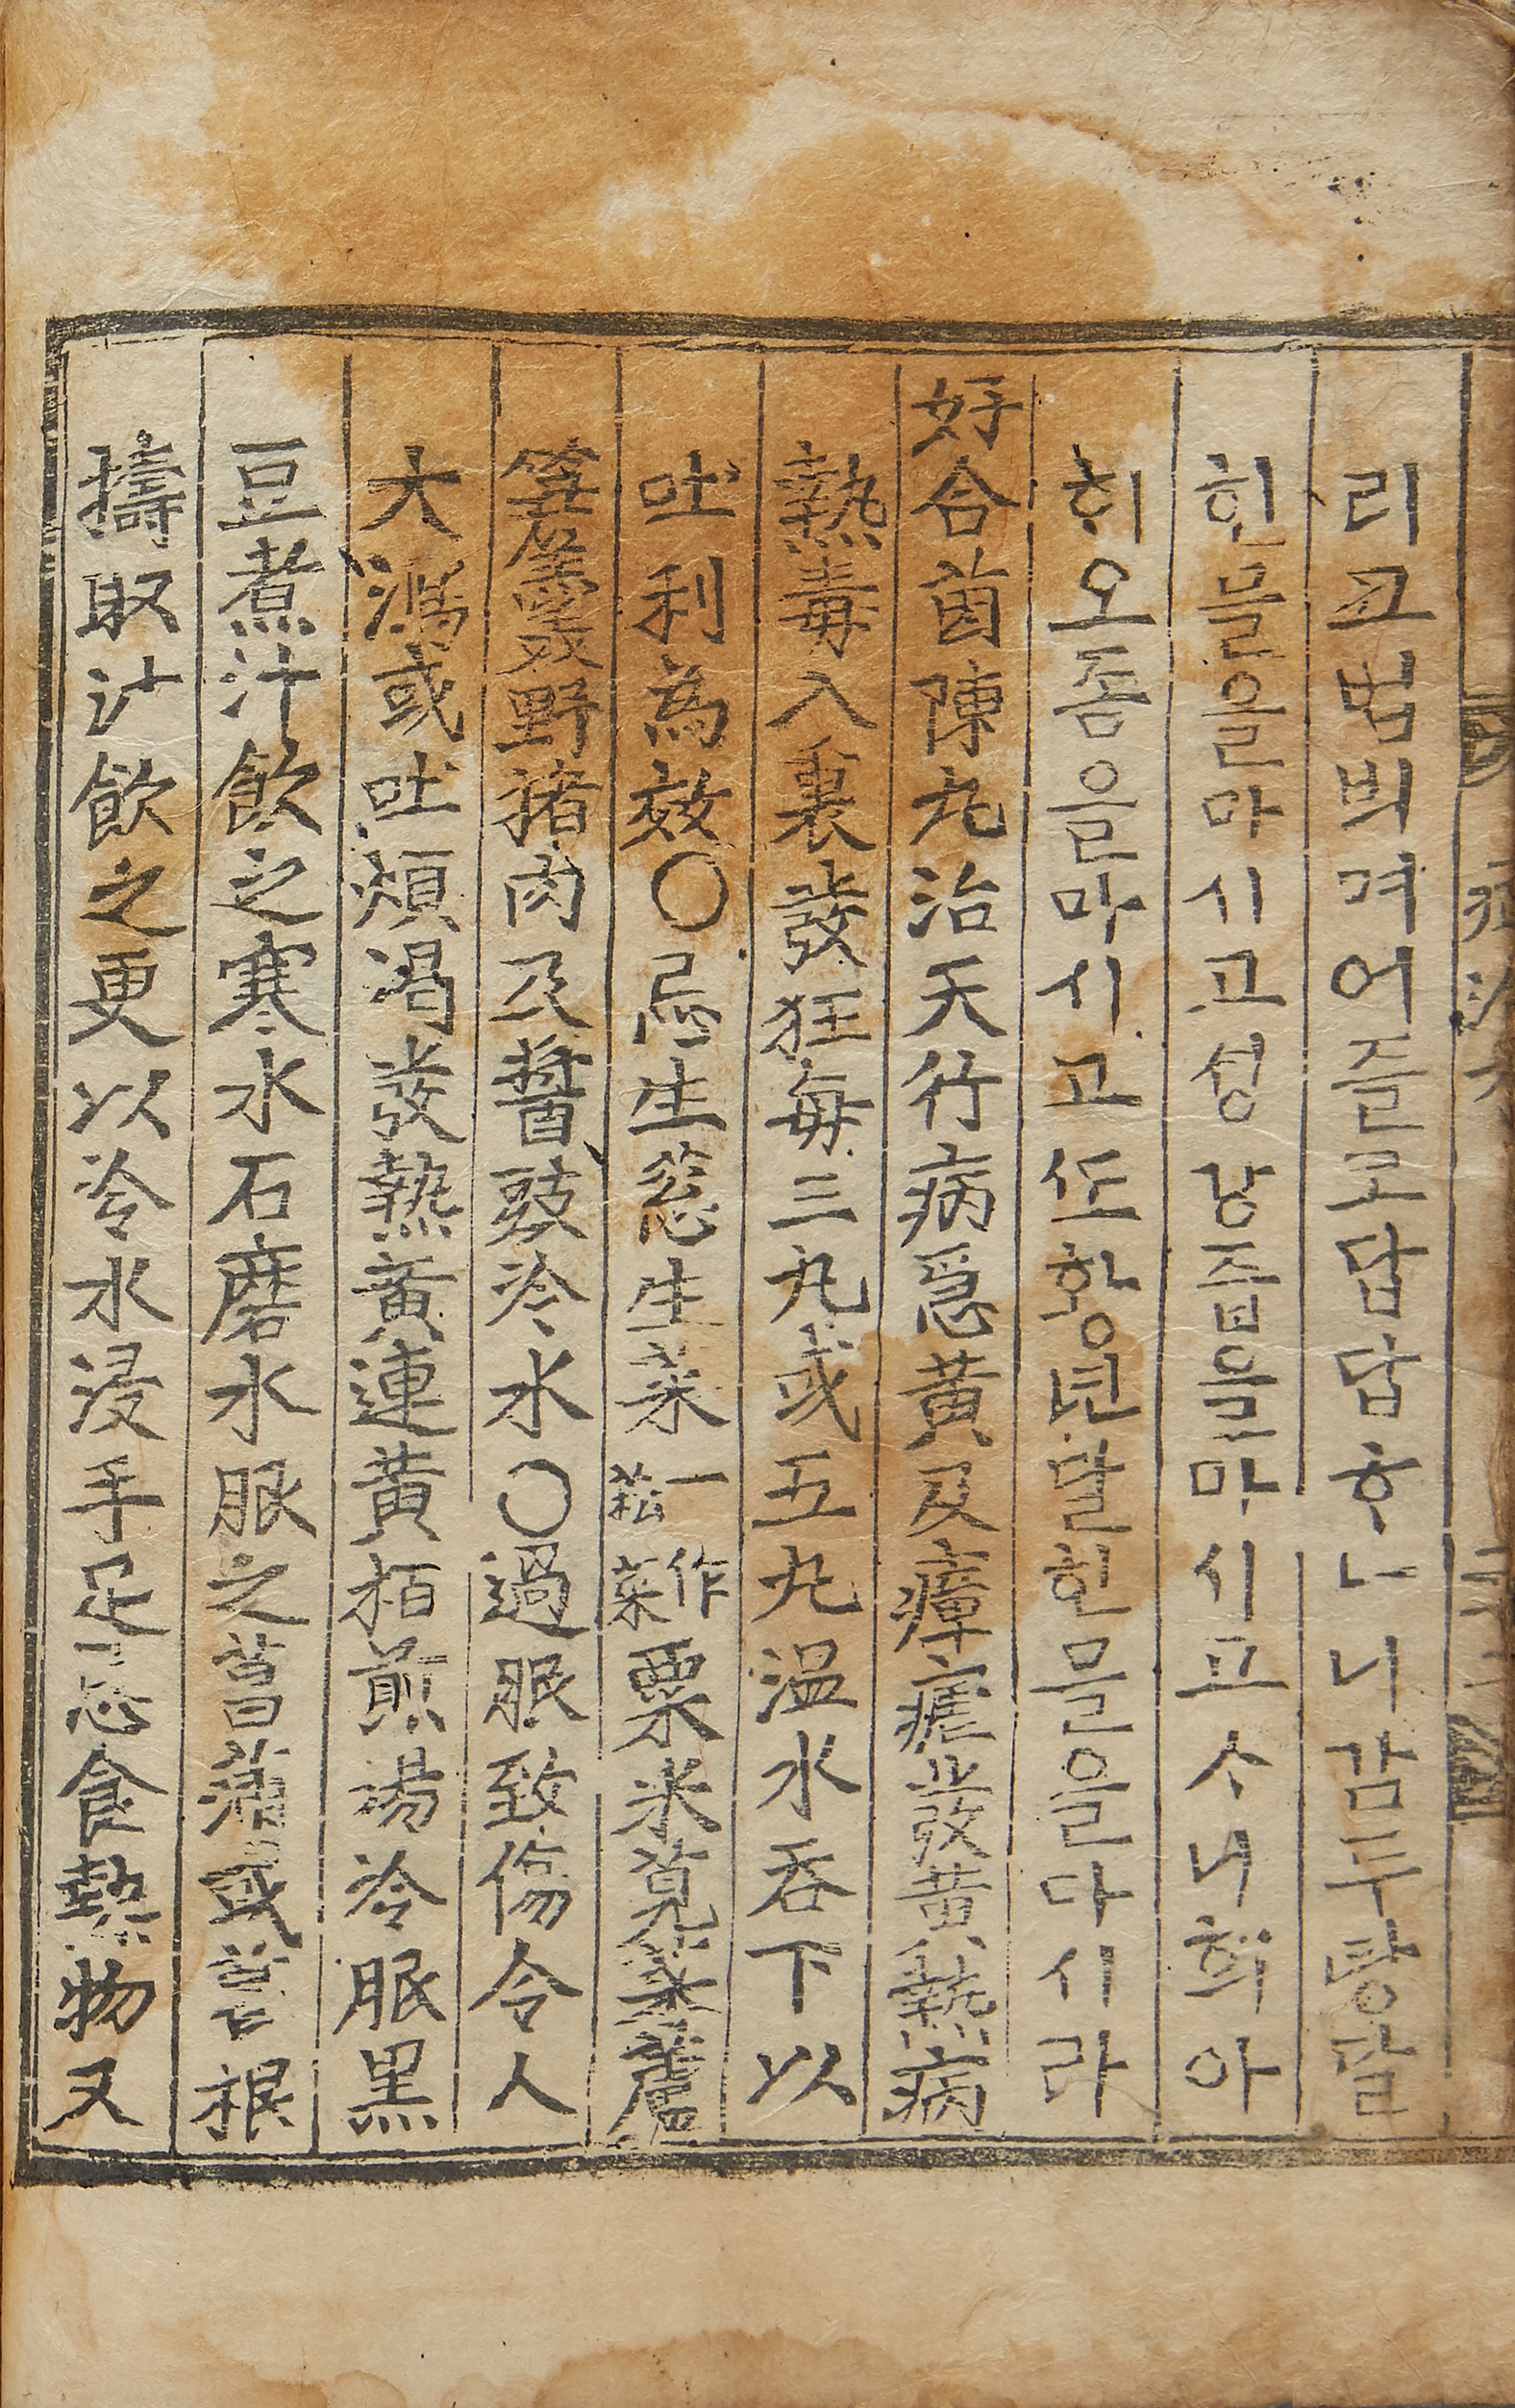 리고범븨며어즐코답답ᄒᆞᄂᆞ니감두탕달
힌믈을마시고싱강즙을마시고ᄉᆞ나ᄒᆡ아
ᄒᆡ오좀을마시고ᄯᅩ황년달힌믈을다시라
好合茵陳丸治天行病急黃及瘴瘧發黃熱病
熱毒入裏發狂每三丸或五丸溫水呑下以
吐利為效〇忌生葱生菜一作菘菜粟米莧菜蘆
笋羹野猪肉及醬豉冷水〇過服致傷令人
大瀉或吐煩渴發熱黃連黃栢煎湯冷服黑
豆煮汁飮之寒水石磨水服之菖蒲或薺苨根
擣取汁飮之更以冷水浸手足忌食熱物又